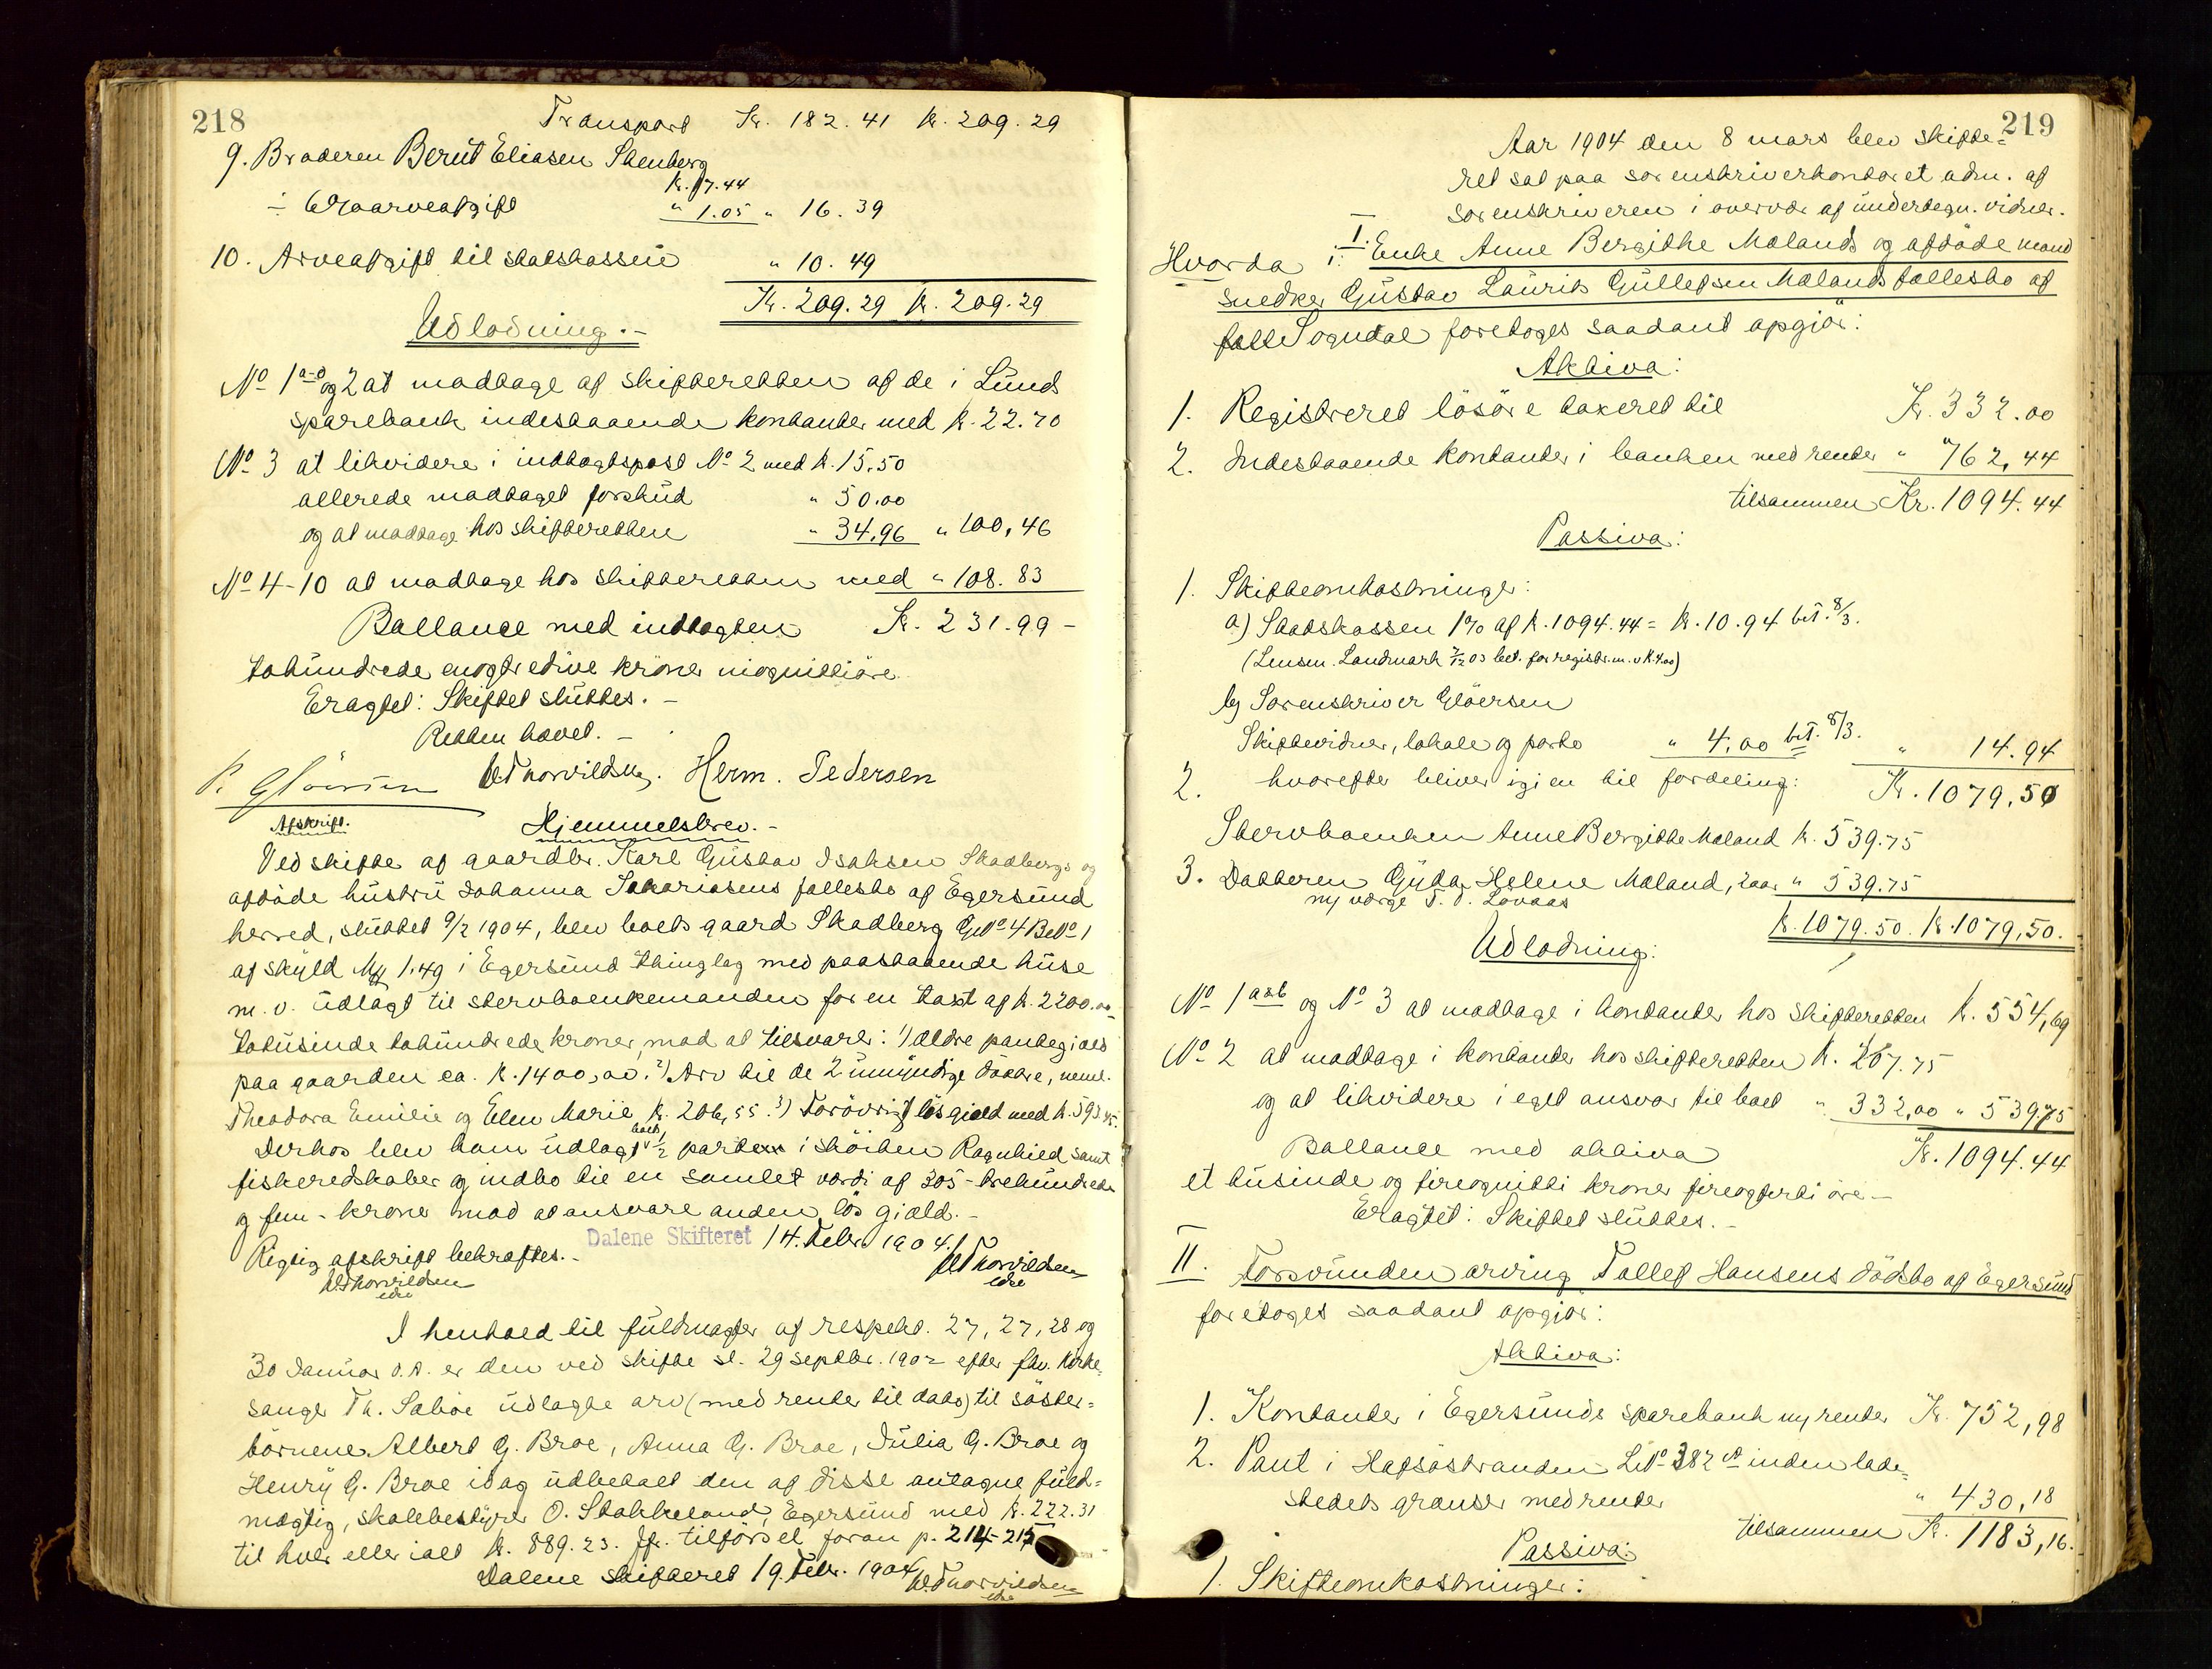 218
Transport Kr. 182.41 Kr. 209.29
9. Broderen Berüt Eliasen Stenberg
Kr. 17.44
÷ 6% arveafgift " 1.05 " 16.39
10. Arveafgift til statskassen " 10.49
Kr. 209.29 Kr. 209.29
Udlodning.-
No 1 a-d og 2 at modtage af skifteretten af de i Lunds
sparebank indestaaende kontanter med kr. 22.70
No 3 at likvidere i indtagtspost No 2 med kr. 15.50
allerede modtaget forskud " 50.00
og at modtage hos skifteretten " 34,96 " 100,46
No 4-10 at modtage hos skifteretten med " 108.83
Ballance med indtagten Kr. 231.99 -
tohundrede enogtredive kroner niognittiøre
Eragtet: Skiftet sluttes. -
Retten hævet. -
P. Gløersen W Thorvildsen. Herm. Pedersen
Afskrift. Hjemmelsbrev. -
Ved skifte af gaardbr. Karl Gustav Isaksen Skadbergs og
afdøde hustru Johanna Sakariasens fællesbo af Egersund
herred, sluttet 9/2 1904, blev boets gaard Skadberg G.No 4 B.No 1
af skyld Mk 1.49 i Egersund thinglag med paastaaende huse
m. v. udlagt til stervboenkemanden for en taxt af kr. 2200.00
totusinde tohundrede kroner, mod at tilsvare: 1) ældre pantegjæld
paa gaarden ca. kr. 1400,00. 2) Arv til de 2 umyndige døtre, neml.
Theodora Emilie og Elen Marie kr. 206,55. 3) Forøvrigt løsgjæld med kr. 593.45.
Derhos blev ham udlagt boets 1/2 part i skøiten Ragnhild samt
fiskeredskaber og indbo til en samlet værdi af 305 - trehundrede
og fem - kroner mod at ansvare anden løs gjæld. -
Dalene Skifteret 14. Febr. 1904.
Rigtig afskrift bekræftes. -
W Thorvildsen
edv
W Thorvildsen
edv
I henhold til fuldmagter af respekt. 27, 27, 28 og
30 Januar d.A. er den ved skifte sl. 29 septbr. 1902 efter fhv. kirke-
sanger Th. Sæbøe udlagte arv (med renter til dato) til søster-
børnene Albert G. Broe, Anna G. Broe, Julia G. Broe og
Henry G. Broe idag udbetalt den af disse antagne fuld-
mægtig, skolebestyrer O. Stokkeland, Egersund med kr. 222.31
til hver eller ialt kr. 889.23. Jfr. tilførsel foran p. 214-215
Dalene skifteret 19. Febr. 1904.
W. Thorvildsen
edv
219
Aar 1904 den 8 mars blev skifte-
ret sat paa sorenskriverkontoret adm. af
sorenskriveren i overvær af undertegn. vidner.
I.
Hvorda i: Enke Anne Bergithe Mølands og afdøde mand
snedker Gustav Laurits Gullefsen Mølands fællesbo af
Sogndal foretoges saadant opgjør:
Aktiva:
1. Registreret løsøre taxeret til Kr. 332.00
2. Indestaaende kontanter i banken med renter " 762,44
tilsammen Kr. 1094.44
Passiva:
1. Skifteomkostninger:
a) Statskassen 1% af kr. 1094.44 = kr. 10.94 bet. 8/3.
(Lensm. Landmark 7/12 03 bet. for registr. m.v. kr. 4.00)
b) Sorenskriver Gløersen
Skiftevidner, lokale og porto " 4,00 bet. 8/3. " 14.94
hvorefter bliver igjen til fordeling: Kr. 1079,50
2. Stervboenken Anne Bergithe Møland kr. 539.75
3. Datteren Gyda Helene Møland, 2 aar " 539.75
ny værge T. O. Løvaas
kr. 1079.50. kr. 1079,50.
Udlodning:
No 1 a&b og No 3 at modtage i kontanter hos skifteretten kr. 554,69
No 2 at modtage i kontanter hos skifteretten kr. 207.75
og at likvidere i eget ansvar til boet " 332,00 " 539,75
Ballance med aktiva Kr. 1094.44
et tusinde og fireognitti kroner fireogførti øre -
Eragtet: Skiftet sluttes. -
II. Forsvunden arving Tollef Hansens dødsbo af Egersund
foretoges saadant opgjør:
Aktiva:
1. Kontanter i Egersunds sparebank m/ renter Kr. 752,98
2. Pant i Hafsøstranden L.No 382 a inden lade-
stedets grænser med renter " 430,18
tilsammen Kr. 1183,16.
Passiva:
1. Skifteomkostninger: